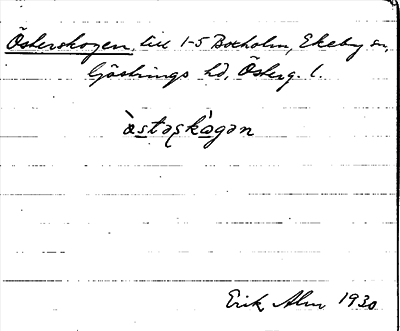 Österskogen, till 1-5 Boxholm, Ekeby sn,
Göstrings hd, Österg. l.
òstəskàgən
Erik Alm 1930